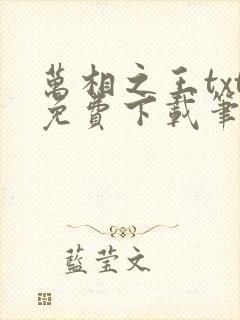 萬相之王txt
免費下載筆
藍莹文